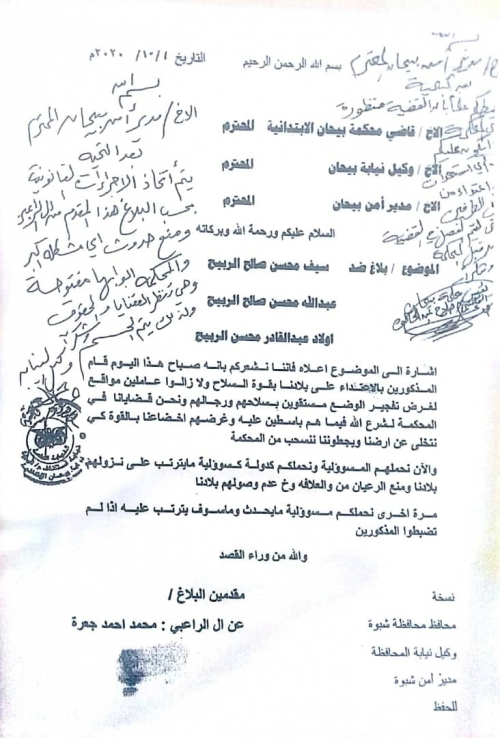 بسم الله الرحمن الرحيم
التاريخ ٢٠٢٠/١٠/١م
بسم الله
الاخ / مدير أمن بيحان المحترم
بعد التحية
يتم أتخاذ الاجراءات القانونية
بحسب البلاغ هذا المقدم من ال الراعبي
ومنع حدوث اي مشكله اكبر
والمحكمة ابوابها مفتوحة
وهي تنظر القضايا
الاخ / قاضي محكمة بيحان الابتدائية المحترم
الاخ / وكيل نيابة بيحان المحترم
الاخ / مدير امن بيحان المحترم
السلام عليكم ورحمة الله وبركاته
الموضوع / بلاغ ضد سيف محسن صالح الربيح
عبدالله محسن صالح الربيح
اولاد عبدالقادر محسن الربيح
اشارة الى الموضوع اعلاه فاننا نشعركم بانه صباح هذا اليوم قام
المذكورين بالاعتداء على بلادنا بقوة السلاح ولا زالوا عاملين مواقع
لغرض تفجير الوضع مستقوين بسلاحهم ورجالهم ونحن قضايانا في
المحكمة لشرع الله فيما هم باسطين عليه وغرضهم اخضاعنا بالقوة كي
نتخلى عن ارضنا ويجعلوننا ننسحب من المحكمة
والأن نحملهم المسؤولية ونحملكم كدولة كسؤولية مايترتب على نزولهم
بلادنا ومنع الرعيان من والعلافه وخ عدم وصولهم بلادنا
مرة اخرى نحملكم مسؤولية مايحدث وماسوف يترتب عليه اذا لم
تضبطوا المذكورين
والله من وراء القصد
مقدمين البلاغ /
عن ال الراعبي : محمد احمد جعرة
نسخة
محافظ محافظة شبوة
وكيل نيابة المحافظة
مدير امن شبوة
للحفظ